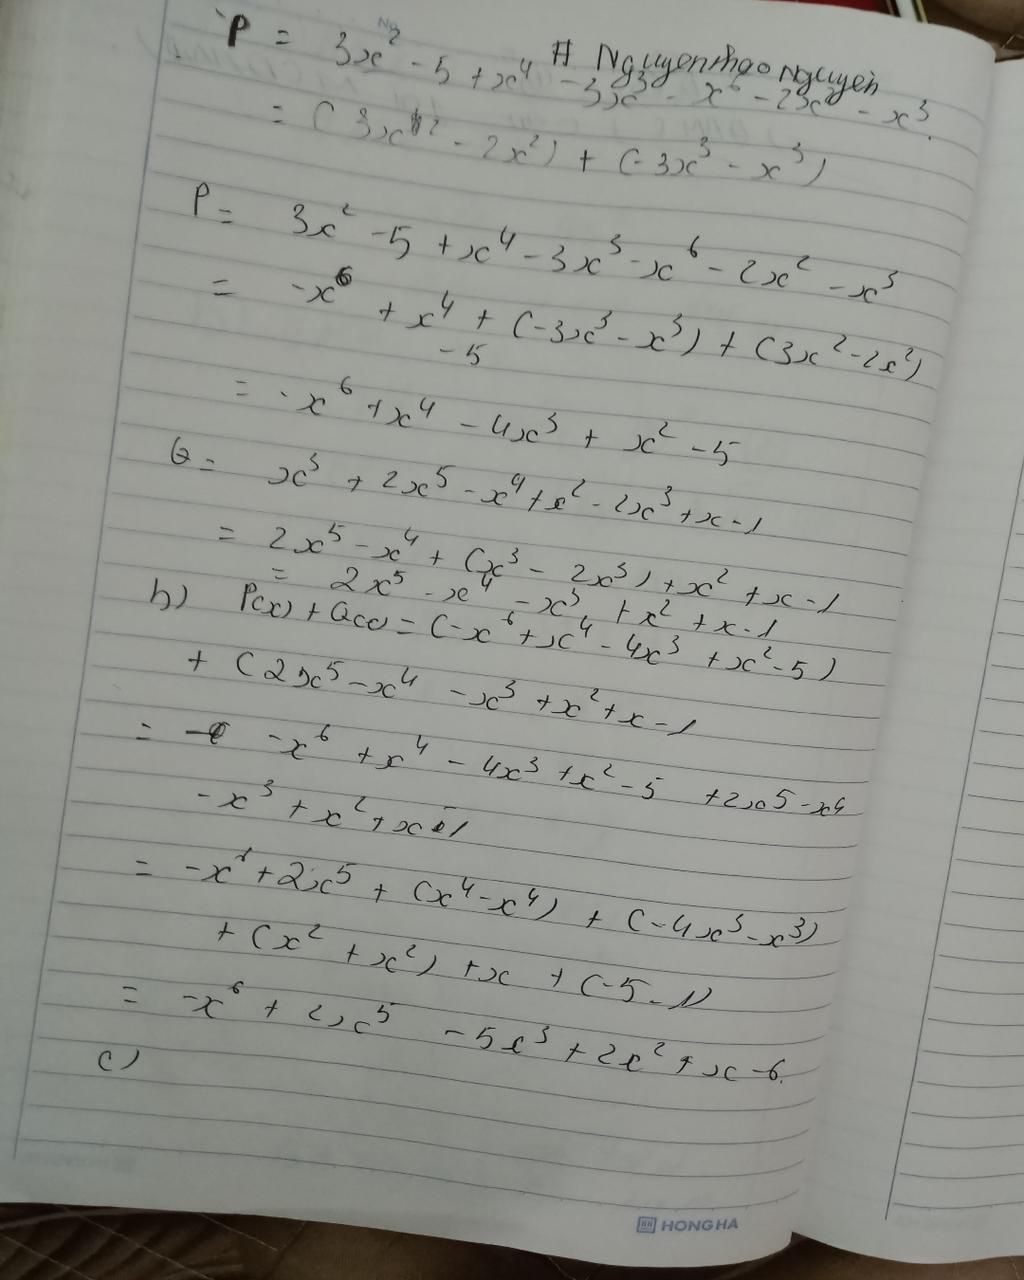 P = 3x² - 5 + x⁴ - 3x³ - x⁶ - 2x² - x³.
# Nguyenthao Nguyên
= (3x² - 2x²) + (-3x³ - x³)
P = 3x² - 5 + x⁴ - 3x³ - x⁶ - 2x² - x³
= -x⁶ + x⁴ + (-3x³ - x³) + (3x² - 2x²)
- 5
= -x⁶ + x⁴ - 4x³ + x² - 5
Q = x³ + 2x⁵ - x⁴ + x² - 2x³ + x - 1
= 2x⁵ - x⁴ + (x³ - 2x³) + x² + x - 1
= 2x⁵ - x⁴ - x³ + x² + x - 1
b) P(x) + Q(x) = (-x⁶ + x⁴ - 4x³ + x² - 5)
+ (2x⁵ - x⁴ - x³ + x² + x - 1
= - -x⁶ + x⁴ - 4x³ + x² - 5 + 2x⁵ - x⁴
- x³ + x² + x - 1
= -x⁶ + 2x⁵ + (x⁴ - x⁴) + (-4x³ - x³)
+ (x² + x²) + x + (-5 - 1)
= -x⁶ + 2x⁵ - 5x³ + 2x² + x - 6.
c)
HONG HA